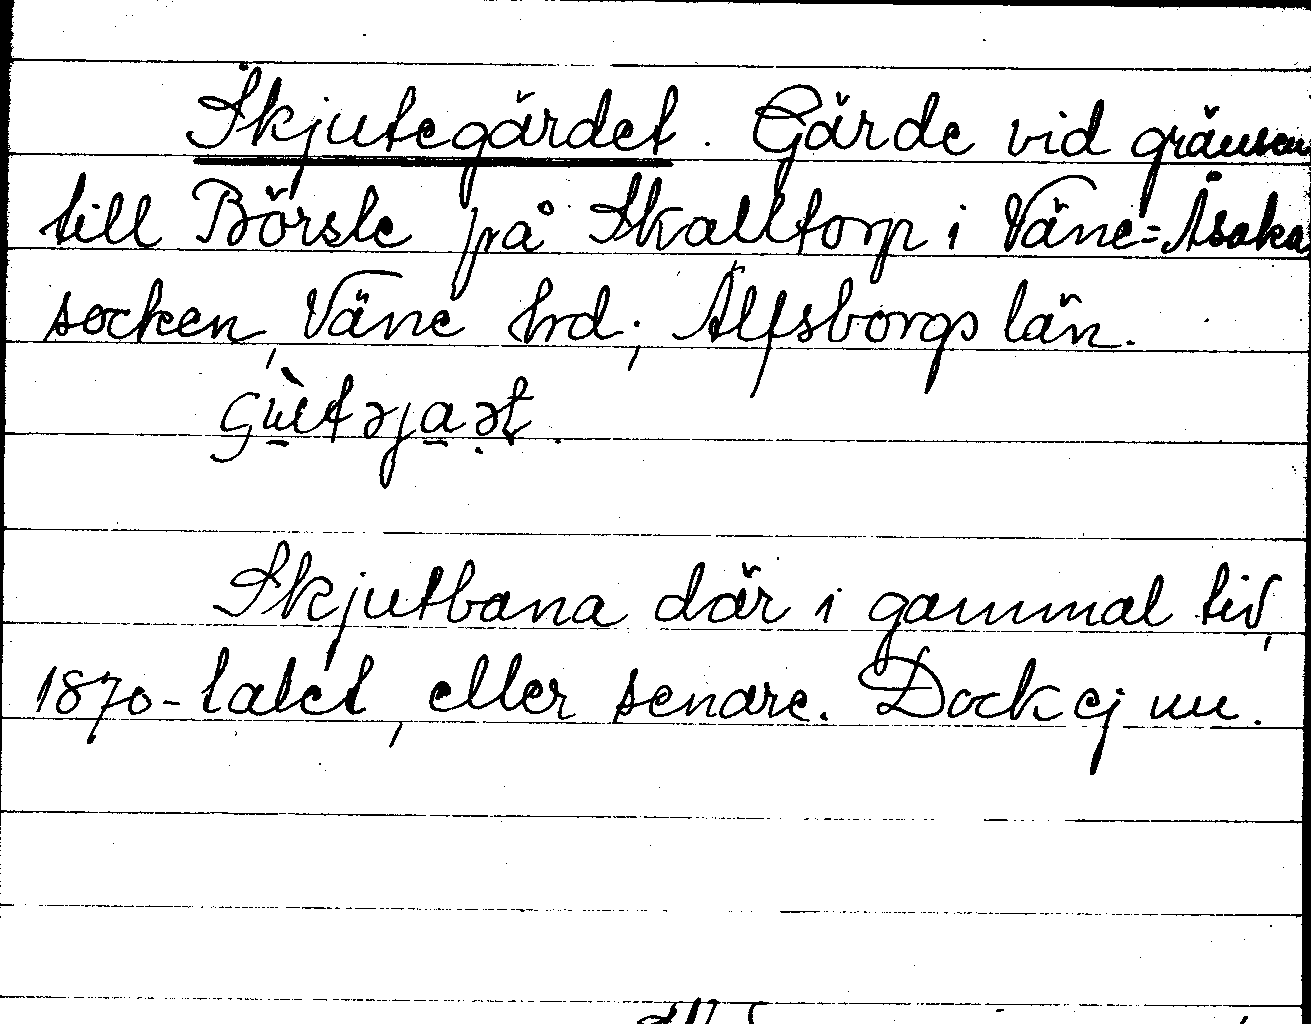 Skjutegärdet. Gärde vid gränsen
till Börsle på Skalltorp i Väne=Åsaka
socken, Väne hrd; Älfsborgs län.
Skjutbana där i gammal tid,
1870-talet, eller senare. Dock ej nu.